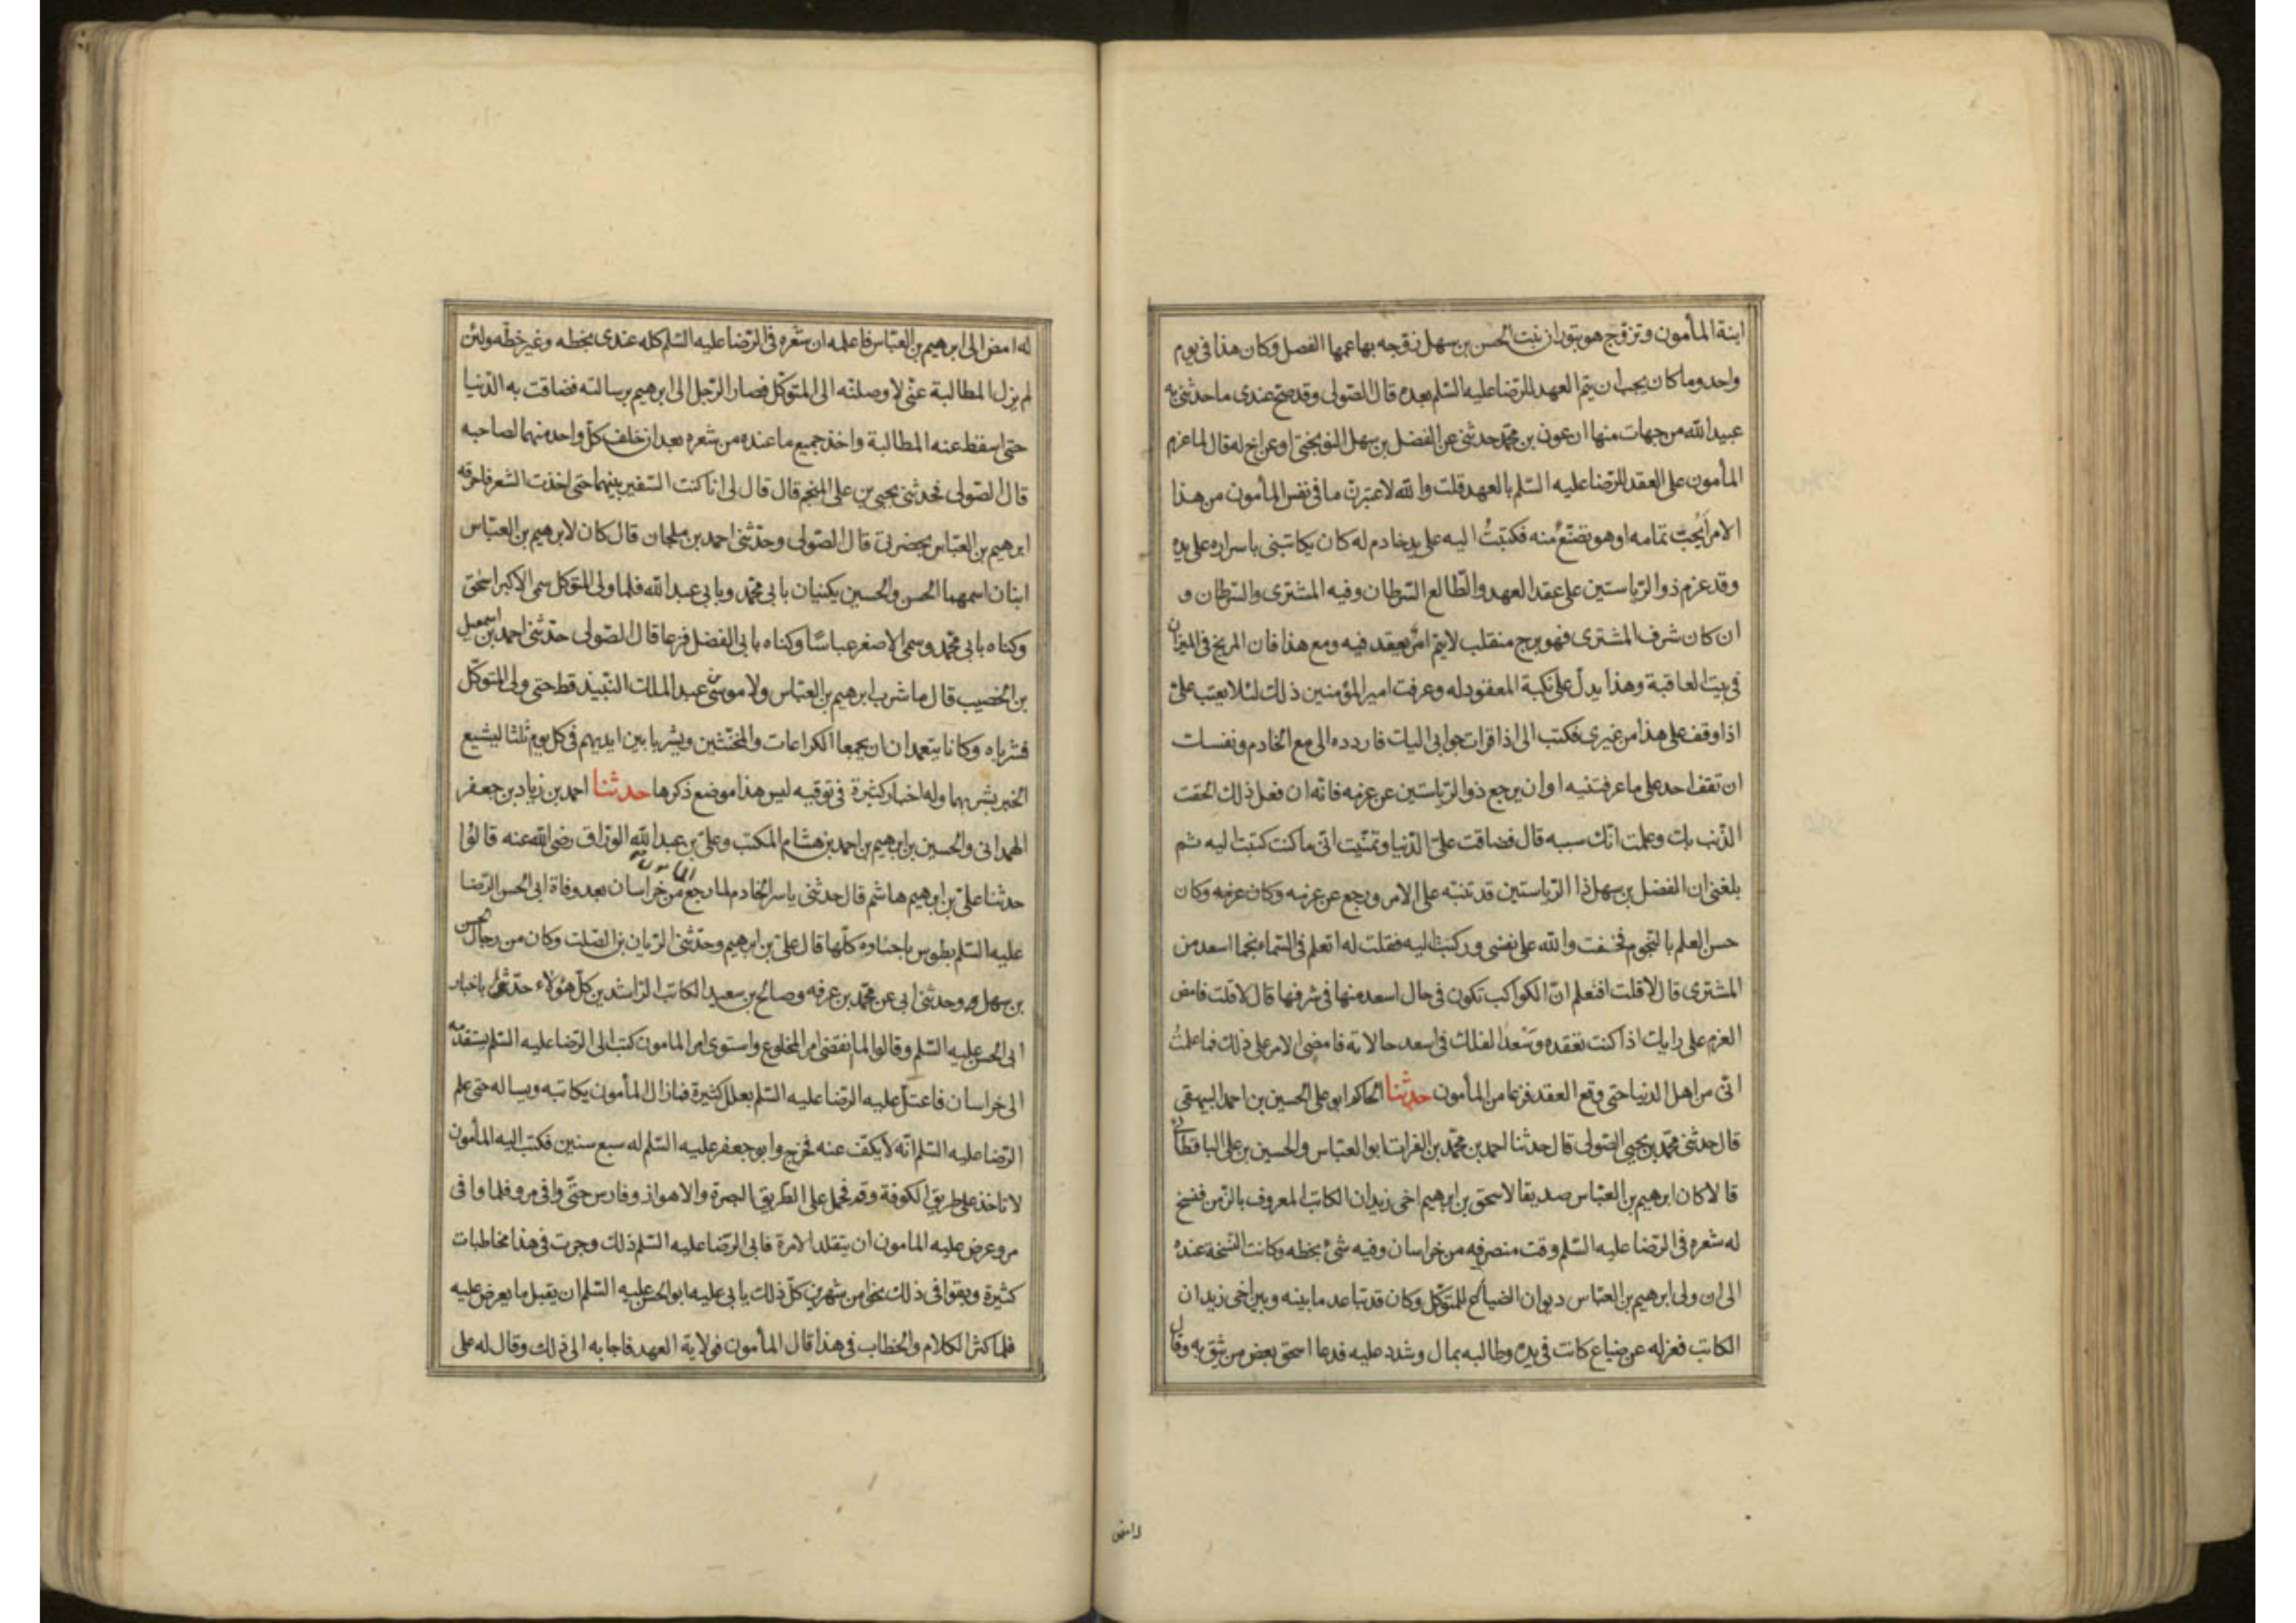 ابنة المأمون وتزوج هو بتوران بنت الحسن بن سهل زوجه بها عمها الفضل وكان هذا في يوم
واحد وما كان يجب ان يتم العهد للرضا عليه السلم بعده قال الصولي وقد صح عندي ما حدثني به
عبيد الله من جهات منها ان عون بن محمد حدثني عن الفضل بن سهل النوبختي او عن اخ له قال لما عزم
المأمون على العقد للرضا عليه السلم بالعهد قلت والله لاعتبرن ما في نفس المأمون من هذا
الامر ايحب تمامه او هو تصنع منه فكتبت اليه على يد خادم له كان يكاتبني باسراره على يده
وقد عزم ذو الرياستين على عقد العهد والطالع السرطان وفيه المشتري والسرطان و
ان كان شرف المشتري فهو برج منقلب لا يتم امر يعقد فيه ومع هذا فان المريخ في الميزان
في بيت العاقبة وهذا يدل على نكبة المعقود له وعرفت امير المؤمنين ذلك لئلا يعتب علي
اذا وقف على هذا من غيري فكتب الي اذا قرات جوابي اليك فاردده الي مع الخادم ونفسك
ان تقف احد على ما عرفتنيه او ان يرجع ذو الرياستين عن عزمه فانه ان فعل ذلك الحقت
الذنب بك وعلمت انك سببه قال فضاقت علي الدنيا وتمنيت اني ما كنت كتبت اليه ثم
بلغني ان الفضل بن سهل ذا الرياستين قد تنبه على الامر ورجع عن عزمه وكان عزمه وكان
حسن العلم بالنجوم فخفت والله على نفسي وركبت اليه فقلت له اتعلم في السماء نجما اسعد من
المشتري قال لا قلت افتعلم ان الكواكب تكون في حال اسعد منها في شرفها قال لا قلت فامض
العزم على رايك اذا كنت تعقده وسعد الفلك في اسعد حالاته فامضى الامر على ذلك فما علمت
اني من اهل الدنيا حتى وقع العقد فزعا من المأمون حدثنا الحاكم ابو علي الحسين بن احمد البيهقي
قال حدثني محمد بن يحيى الصولي قال حدثنا احمد بن محمد بن الفرات ابو العباس والحسين بن علي الباقطاني
قالا كان ابرهيم بن العباس صديقا لاسحق بن ابرهيم اخي زيدان الكاتب المعروف بالزمن فنسخ
له شعره في الرضا عليه السلم وقت منصرفه من خراسان وفيه شئ بخطه وكانت النسخة عنده
الى ان ولي ابرهيم بن العباس ديوان الضياع للمتوكل وكان قد تباعد ما بينه وبين اخي زيدان
الكاتب فعزله عن ضياع كانت في يده وطالبه بمال وشدد عليه فدعا اسحق بعض من يثق به وقال
له امض
له امض الى ابرهيم بن العباس فاعلمه ان شعره في الرضا عليه السلم كله عندي بخطه وغير خطه ولئن
لم يزل المطالبة عني لاوصلنه الى المتوكل فصار الرجل الى ابرهيم برسالته فضاقت به الدنيا
حتى اسقط عنه المطالبة واخذ جميع ما عنده من شعره بعد ان خلف كل واحد منهما لصاحبه
قال الصولي فحدثني يحيى بن علي المنجم قال قال لي انا كنت السفير بينهما حتى اخذت الشعر فاحرقه
ابرهيم بن العباس بحضرتي قال الصولي وحدثني احمد بن ملحان قال كان لابرهيم بن العباس
ابنان اسمهما الحسن والحسين يكنيان بابي محمد وبابي عبد الله فلما ولي المتوكل سمى الاكبر اسحق
وكناه بابي محمد وسمى الاصغر عباسا وكناه بابي الفضل فزعا قال الصولي حدثني احمد بن اسمعيل
بن الخصيب قال ما شرب ابرهيم بن العباس ولا موسى بن عبد الملك النبيذ قط حتى ولي المتوكل
فشرباه وكانا يتعمدان ان يجمعا الكراعات والمخنثين ويشربا بين ايديهم في كل يوم ثلثا ليشيع
الخبر بشربهما وله اخبار كثيرة في توقيه ليس هذا موضع ذكرها حدثنا احمد بن زياد بن جعفر
الهمداني والحسين بن ابرهيم بن احمد بن هشام المكتب وعلي بن عبد الله الوراق رضي الله عنه قالوا
حدثنا علي بن ابرهيم هاشم قال حدثني ياسر الخادم لما رجع المامون من خراسان بعد وفاة ابي الحسن الرضا
عليه السلم بطوس باخباره كلها قال علي بن ابرهيم وحدثني الريان بن الصلت وكان من رجال الحسن
بن سهل وحدثني ابي عن محمد بن عرفه وصالح بن سعيد الكاتب الراشدين كل هؤلاء حدثوا باخبار
ابي الحسن عليه السلم وقالوا لما انقضى امر المخلوع واستوى امر المامون كتب الى الرضا عليه السلم يستقدمه
الى خراسان فاعتل عليه الرضا عليه السلم بعلل كثيرة فما زال المأمون يكاتبه ويساله حتى علم
الرضا عليه السلم انه لا يكف عنه فخرج وابو جعفر عليه السلم له سبع سنين فكتب اليه المأمون
لا تاخذ على طريق الكوفة وقم فحمل على الطريق البصرة والاهواز وفارس حتى وافى مرو فلما وافى
مرو عرض عليه المامون ان يتقلد الامرة فابى الرضا عليه السلم ذلك وجرت في هذا مخاطبات
كثيرة وبقوا في ذلك نحوا من شهرين كل ذلك يابي عليه ابو الحسن عليه السلم ان يقبل ما يعرض عليه
فلما كثر الكلام والخطاب في هذا قال المأمون فولاية العهد فاجابه الى ذلك وقال له على